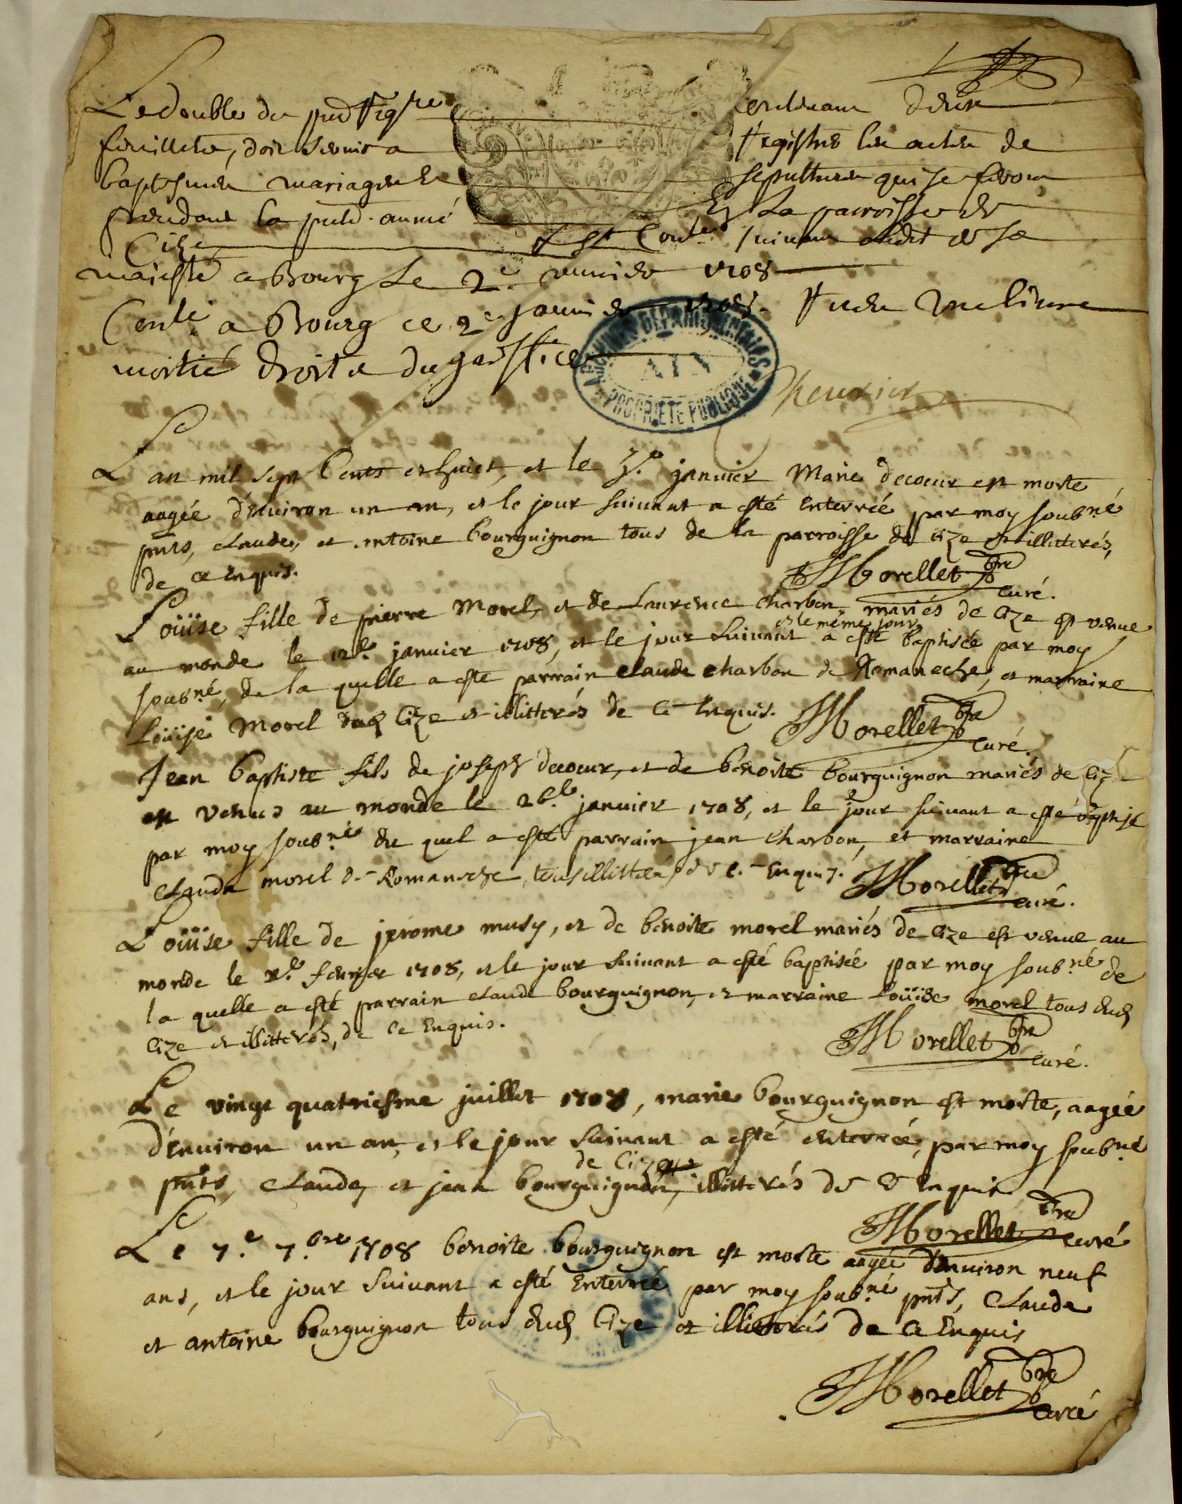 Le double du pnt Regre contenant deux
feuillets, doit servir a Registre les actes de
baptesmes mariages et sepultures qui se feront
pendant la pnte année En La parroisse de
Cize suivant ledit de sa
maiesté a Bourg Le 2e janvier 1708
Contlé a Bourg ce 2e janvier 1708.
moitié droits du greffice
ARCHIVES DEPARTEMENTALES
AIN
PROPRIETE PUBLIQUE
L'an mil sept Cents et huict, et le janvier Marie decoeur est morte
aagée d'environ un an, et le jour suivant a esté Enterrée par moy soubné
pnts, claude, et antoine bourguignon tous de la parroisse de Cize et illitterés,
de ce Enquis. Morellet pbre
curé.
Loüise fille de pierre Morel, et de Laurence charbon, mariés de Cize est venue
et le même jour
au monde le 12e janvier 1708, et le jour suivant a esté baptisée par moy
soubné, de la quelle a esté parrain claude charbon de Romaneche, et marraine
Loüise Morel dud Cize et illitterés de ce Enquis. Morellet pbre
curé.
Jean baptiste fils de joseph decoeur, et de benoite bourguignon mariés de Cize
est venus au monde le 26e janvier 1708, et le jour suivant a esté baptisé
par moy soubné du quel a esté parrain jean charbon, et marraine
Clauda morel de Romaneche, tous illitterés de ce Enquis. Morellet pbre
curé.
Loüise fille de jerome musy, et de benoite morel mariés de Cize est venue au
monde le fevrier 1708, et le jour suivant a esté baptisée par moy soubné de
la quelle a esté parrain claude bourguignon, et marraine Loüise morel tous dud
Cize et illitterés, de ce Enquis. Morellet pbre
curé.
Le vingt quatriesme juillet 1708, marie bourguignon est morte, aagée
d'Environ un an, et le jour suivant a esté enterrée, par moy soubné
de Cize
pnts, claude, et jean bourguignon, illitterés de ce Enquis
Morellet pbre
curé
Le 7e 7bre 1708 benoite bourguignon est morte aagée d'Environ neuf
ans, et le jour suivant a esté Enterrée par moy soubné pnts, claude
et antoine bourguignon tous dud Cize et illitterés de ce Enquis
Morellet pbre
curé